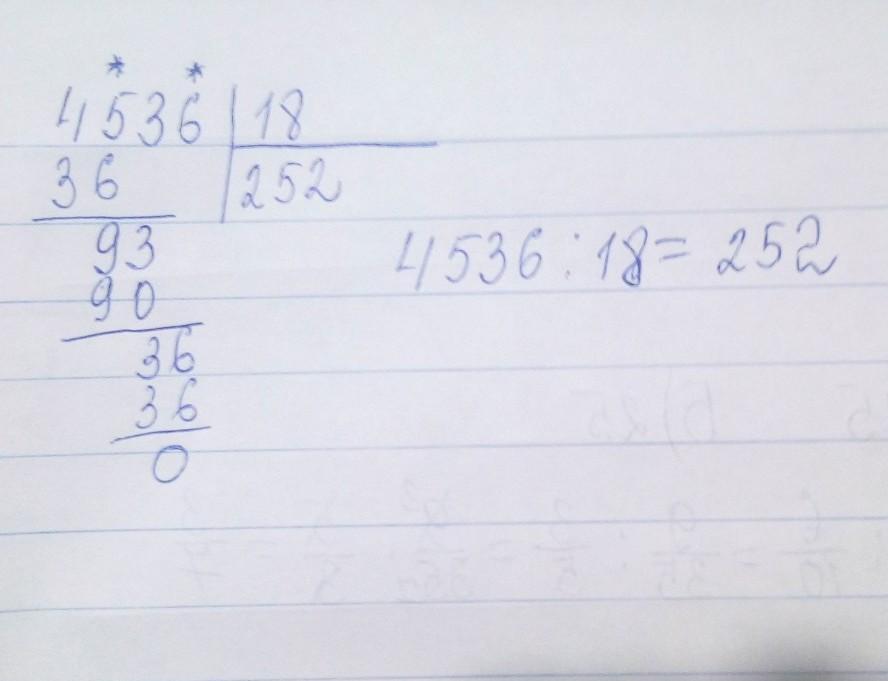 * *
4536 | 18
36 | 252
93
90
36
36
0
4536 : 18 = 252